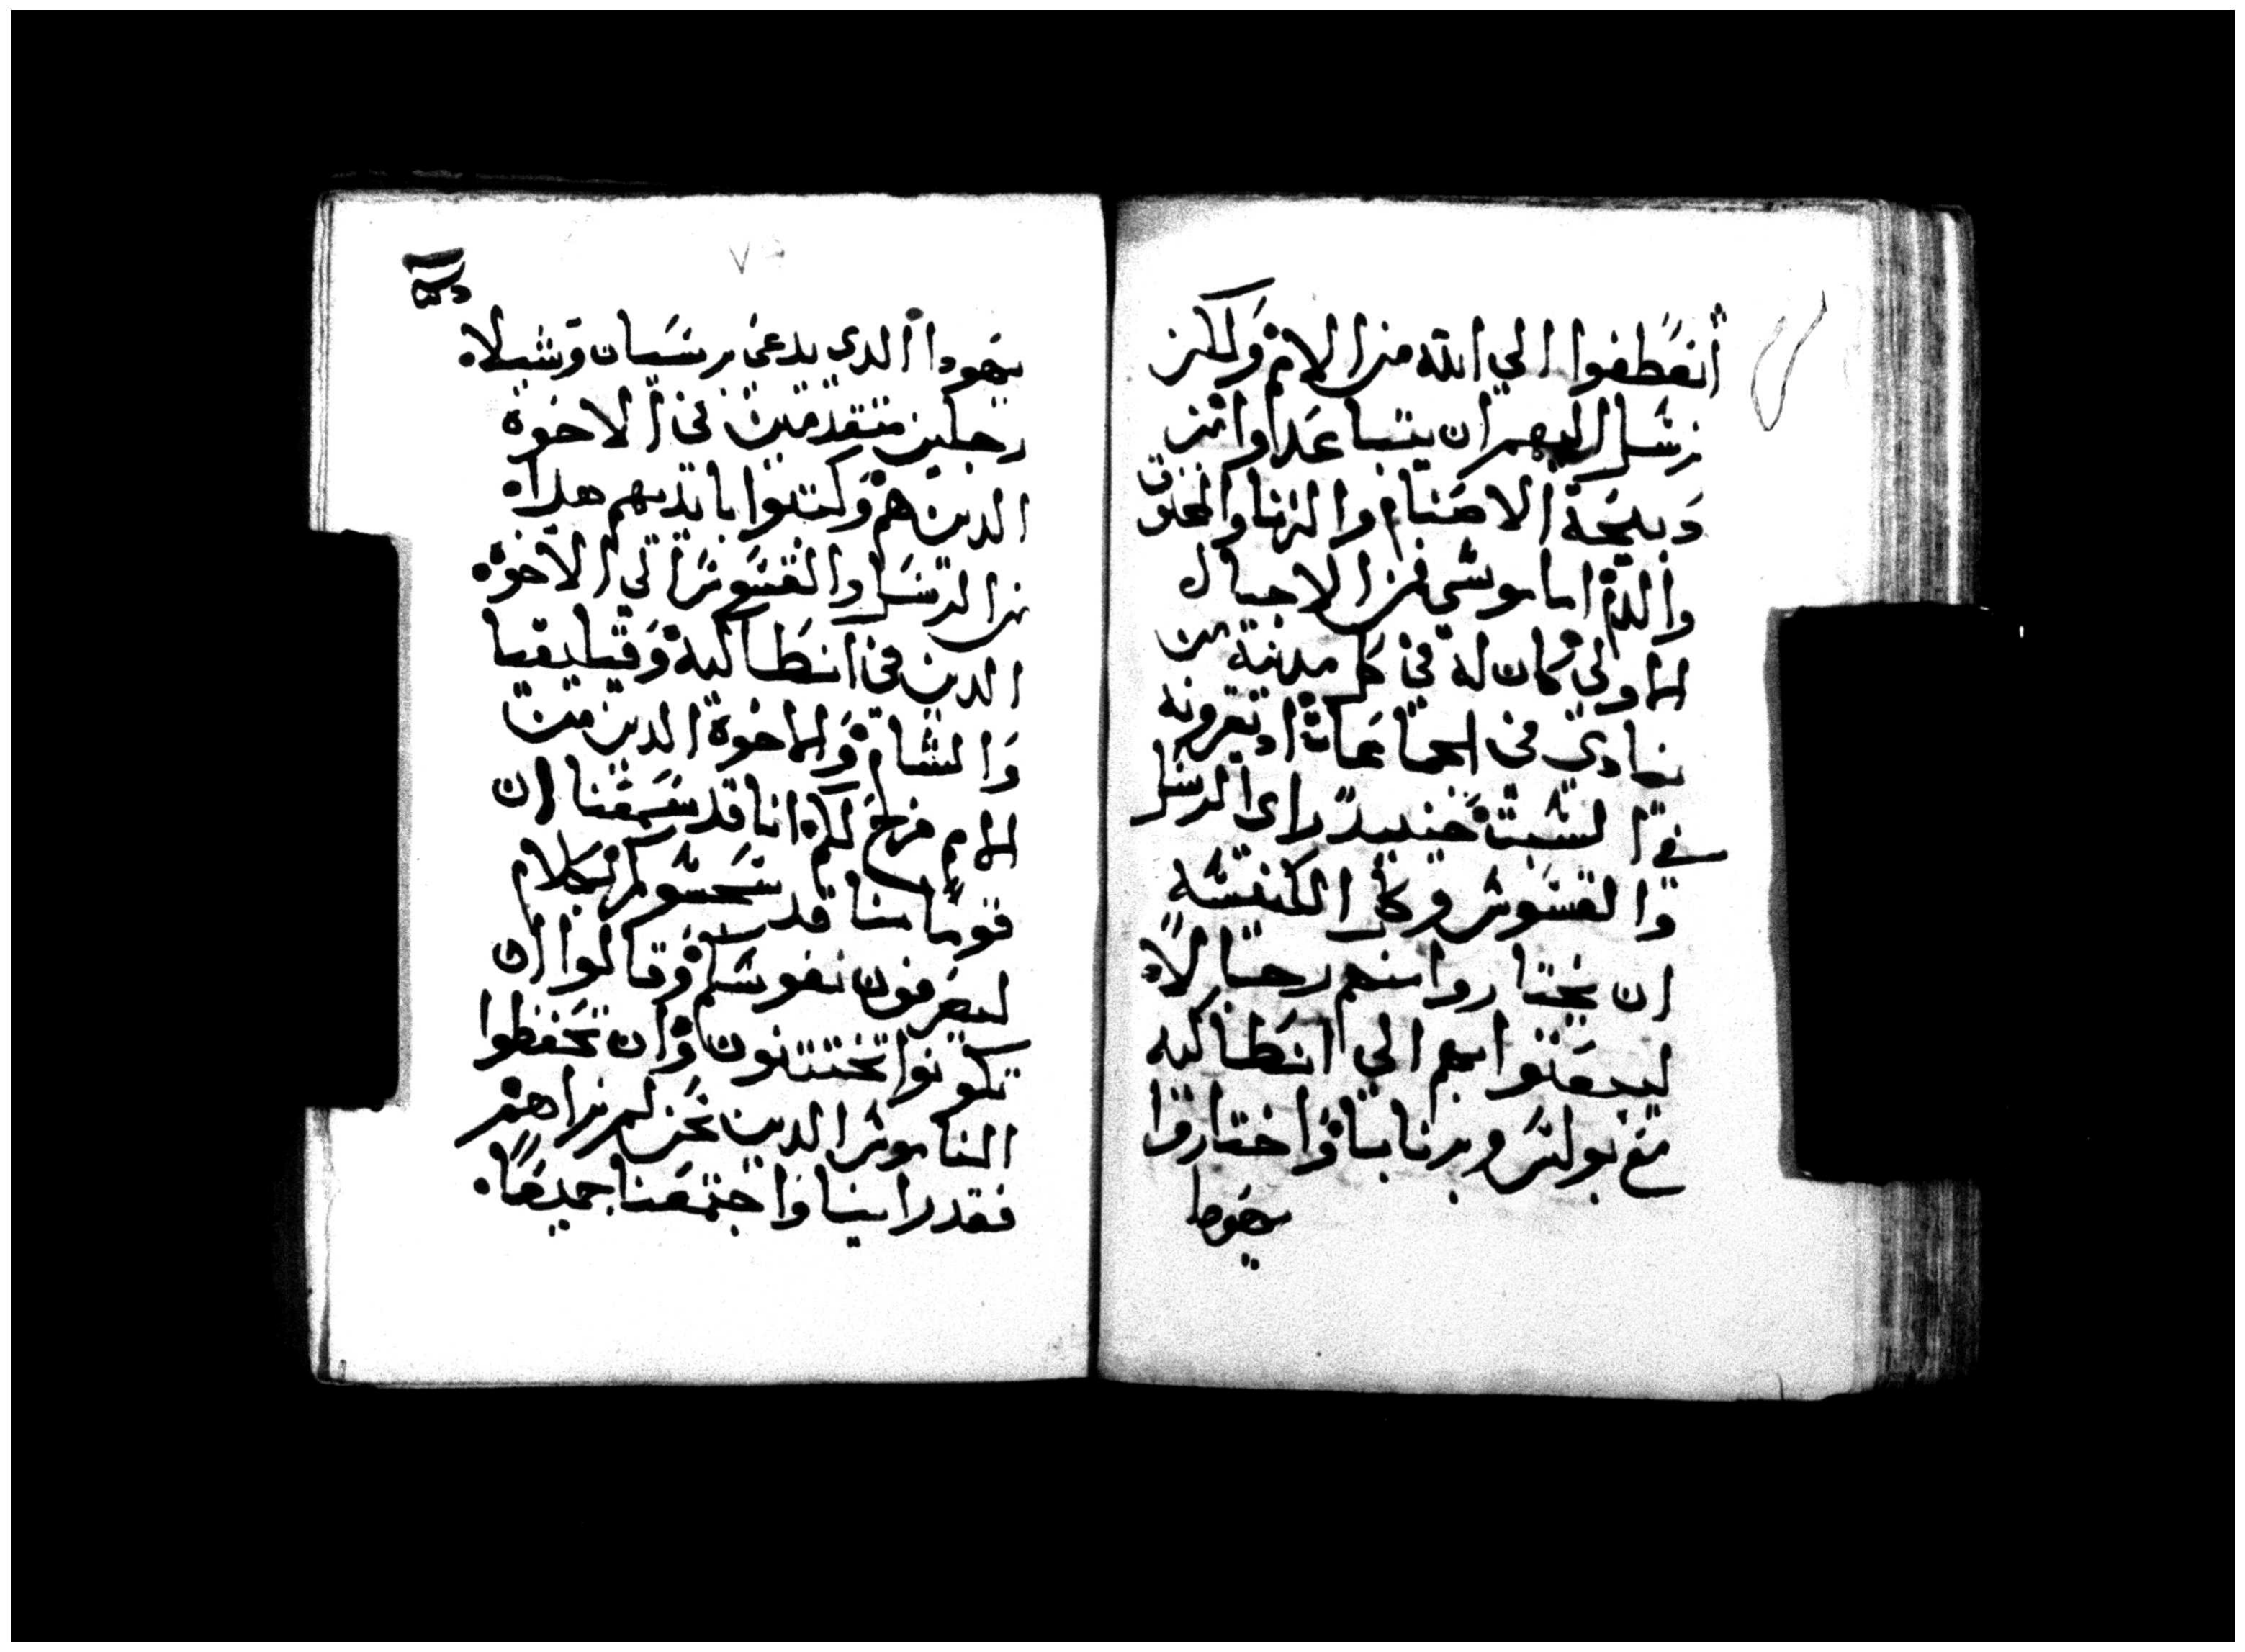 أنعطفوا الي الله من الامم ولكن
نرسل اليهم ان يتباعدوا من
دبيحة الاصنام والزنا والمخنوق
والدم اما موسي فمن الاجيال
الاولي وكان له في كل مدينة من
ينادي في الجماعات اد يقرونه
في السبت حينيد راى الرسل
والقسوس وكل الكنيسه
ان يختاروا منهم رجالاً
ليبعثوا بهم الي انطاكيه
مع بولس وبرنابا واختاروا
يهودا
يهودا الدي يدعى برسبان وشيلا
رجلين متقدمين في الاخوة
الدين هم وكتبوا بايديهم هدا
من الرسل والقسوس الي الاخوة
الدين في انطاكية وقيليقيا
والشام والاخوة الدين من
الامم فرح لكم انا قد سمعنا ان
قوما منا قد سجسوكم بكلام
ليصرفون نفوسكم وقالوا ان
تكونوا تختتنون وان تحفظوا
الناموس الدين نحن لم نراهم
فقد راينا واجتمعنا جميعاً